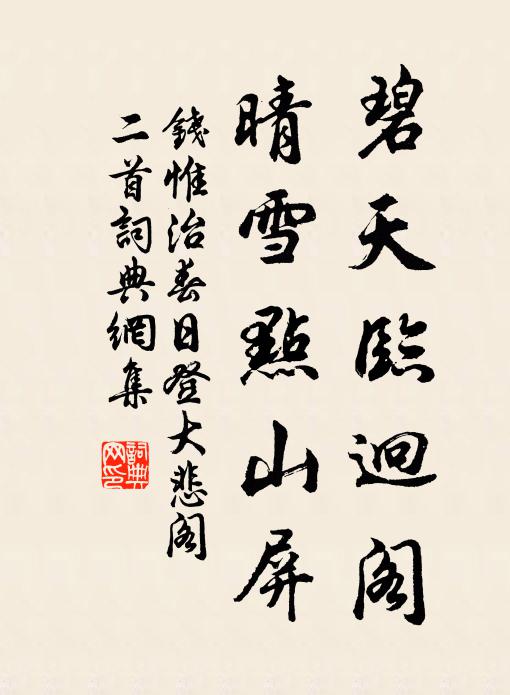 碧天臨迥閣
晴雪點山屏
錢惟治春日登大悲閣
二首詞典網集
詞典網印